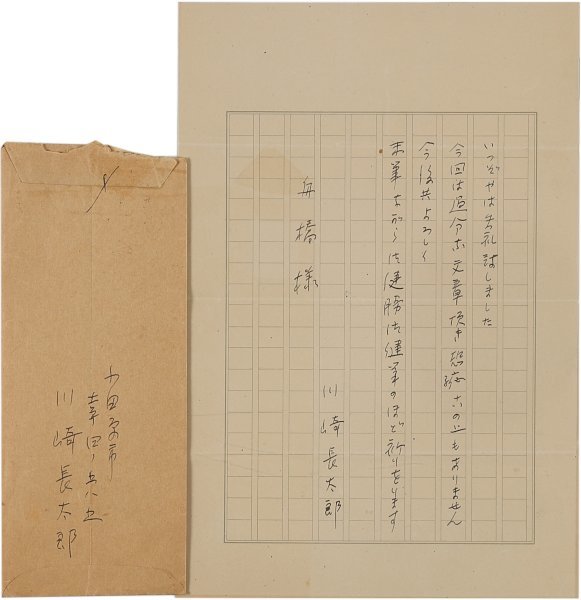 いつぞやは失礼致しました
今回は過分な文章頂き恐縮この上もありません
今後共よろしく
末筆ながら御健勝御健筆のほど祈りをります
川崎長太郎
舟橋様
小田原市
幸町
川崎長太郎